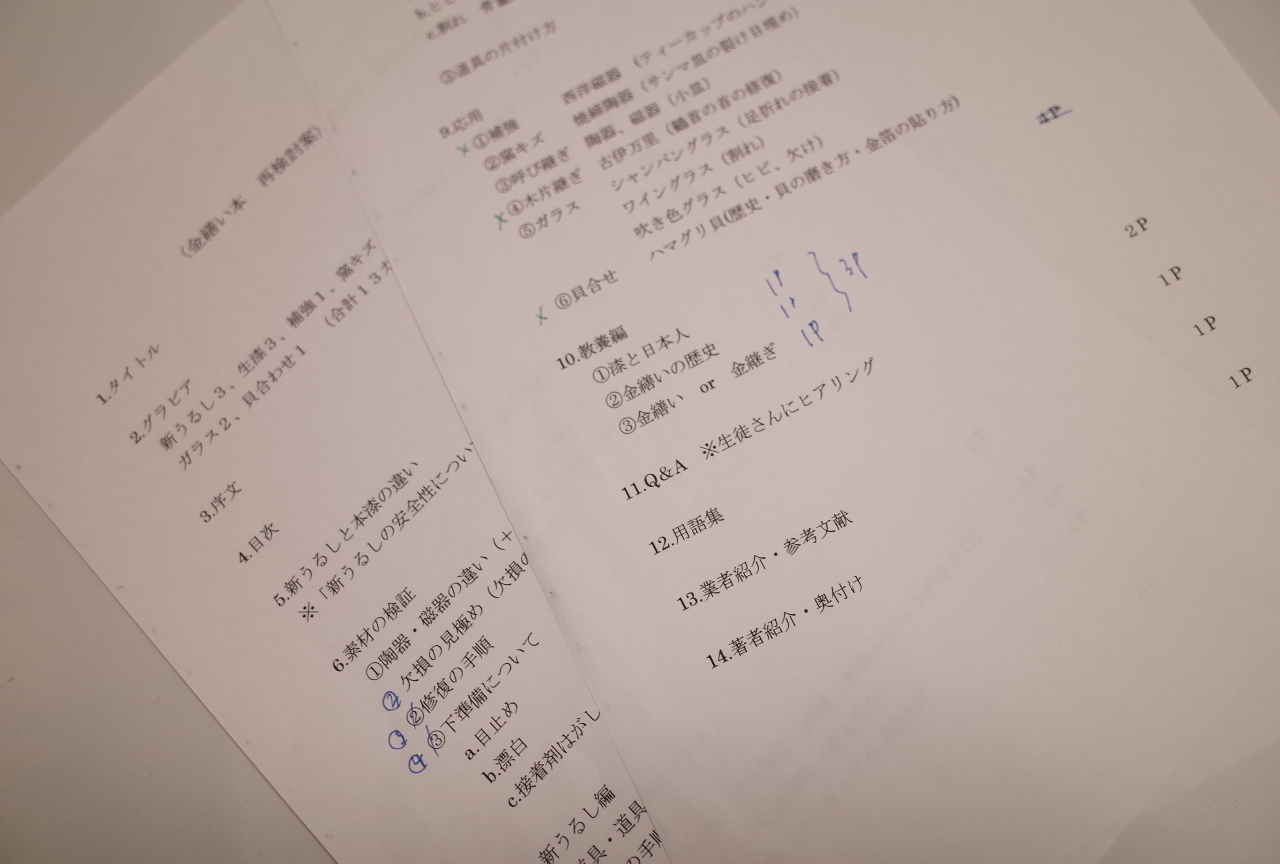 （金繕い本　再検討案）
1.タイトル
2.グラビア
新うるし３、生漆３、補強１、窯キズ
ガラス２、貝合わせ１　（合計１３カ
3.序文
4.目次
5.新うるしと本漆の違い
※「新うるしの安全性につい
6.素材の検証
①陶器・磁器の違い（＋
② 欠損の見極め（欠損の
③ ②修復の手順
④ ③下準備について
a.目止め
b.漂白
c.接着剤はがし
新うるし編
道具・道具
の手順
c.割れ
③道具の片付け方
9.応用
×①補強　西洋磁器（ティーカップのハン
②窯キズ　焼締陶器（サンマ皿の裂け目埋め）
③呼び継ぎ　陶器、磁器（小皿）
×④木片継ぎ　古伊万里（鶴首の首の修復）
⑤ガラス　シャンパングラス（足折れの接着）
ワイングラス（割れ）
吹き色グラス（ヒビ、欠け）
×⑥貝合せ　ハマグリ貝(歴史・貝の磨き方・金箔の貼り方)
4P
10.教養編
①漆と日本人　1P
②金繕いの歴史　1P
③金繕い　or　金継ぎ　1P
3P
11.Q&A　※生徒さんにヒアリング　２P
12.用語集　１P
13.業者紹介・参考文献　１P
14.著者紹介・奥付け　１P